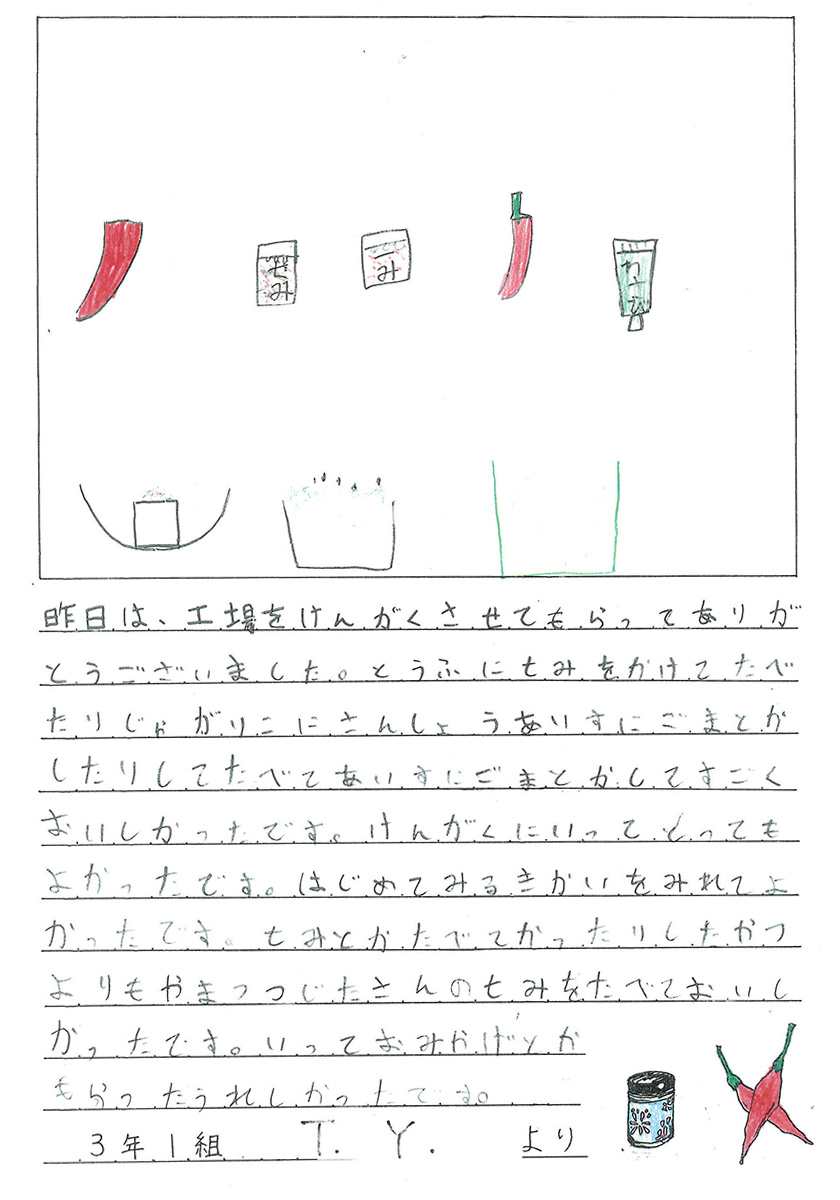 七み
一み
わさび
昨日は、工場をけんがくさせてもらってありが
とうございました。とうふに七みをかけてたべ
たりじゃがりこにさんしょうあいすにごまとか
したりしてたべてあいすにごまとかしてすごく
おいしかったです。けんがくにいってとっても
よかったです。はじめてみるきかいをみれてよ
かったです。七みとかたべてかったりしたやつ
よりもやまつつじたさんの七みをたべておいし
かったです。いっておみやげとか
もらったうれしかったです。
3年1組 T. Y. より